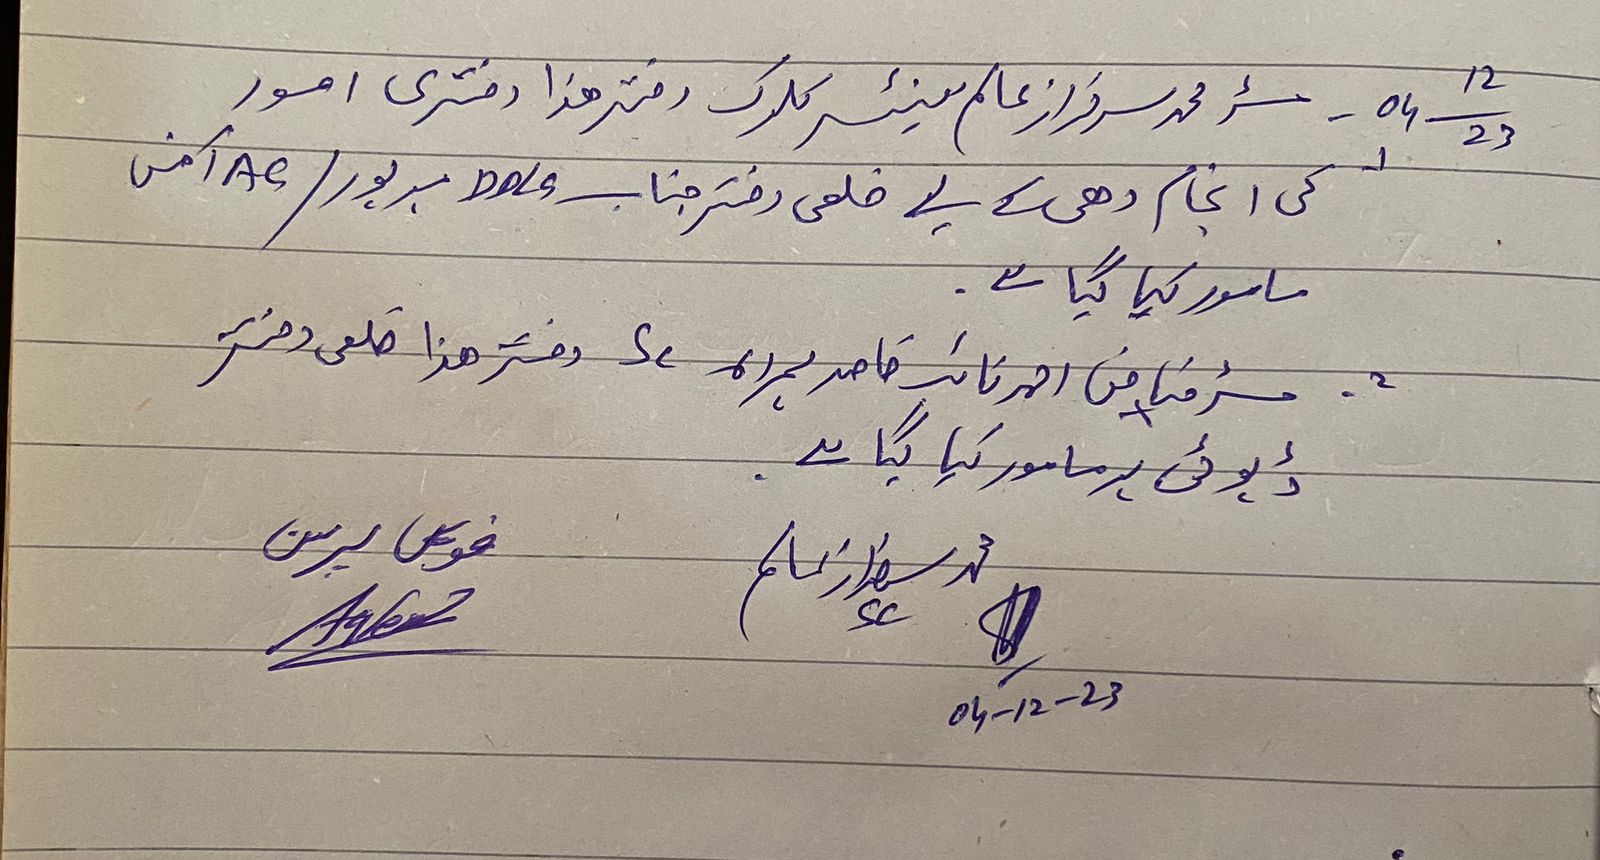 04-12/23 - مسٹر محمد سرفراز عالم سینئر کلرک دفتر ھذا دفتری امور
1- کی انجام دھی کے لیے ضلعی دفتر جناب DDLG میرپور/AG آفس
مامور کیا گیا ہے۔
2- مسٹر فیاض احمد نائب قاصد ہمراہ SC دفتر ھذا ضلعی دفتر
ڈیوٹی پر مامور کیا گیا ہے۔
محمد سرفراز عالم
SC
04-12-23